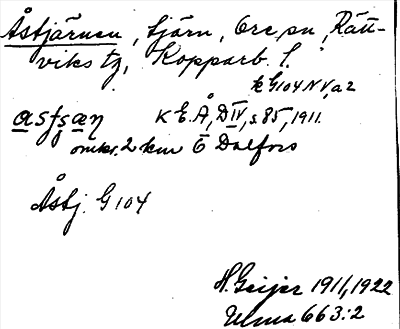 Åstjärnen, tjärn, Ore sn, Rätt-
viks tg, Kopparb. l.
k G104 N V, a 2
KE.Å, D IV, s. 85, 1911.
omkr. 2 km Ö Dalfors
Åstj. G 104
H. Geijer 1911, 1922
Ulma 663:2